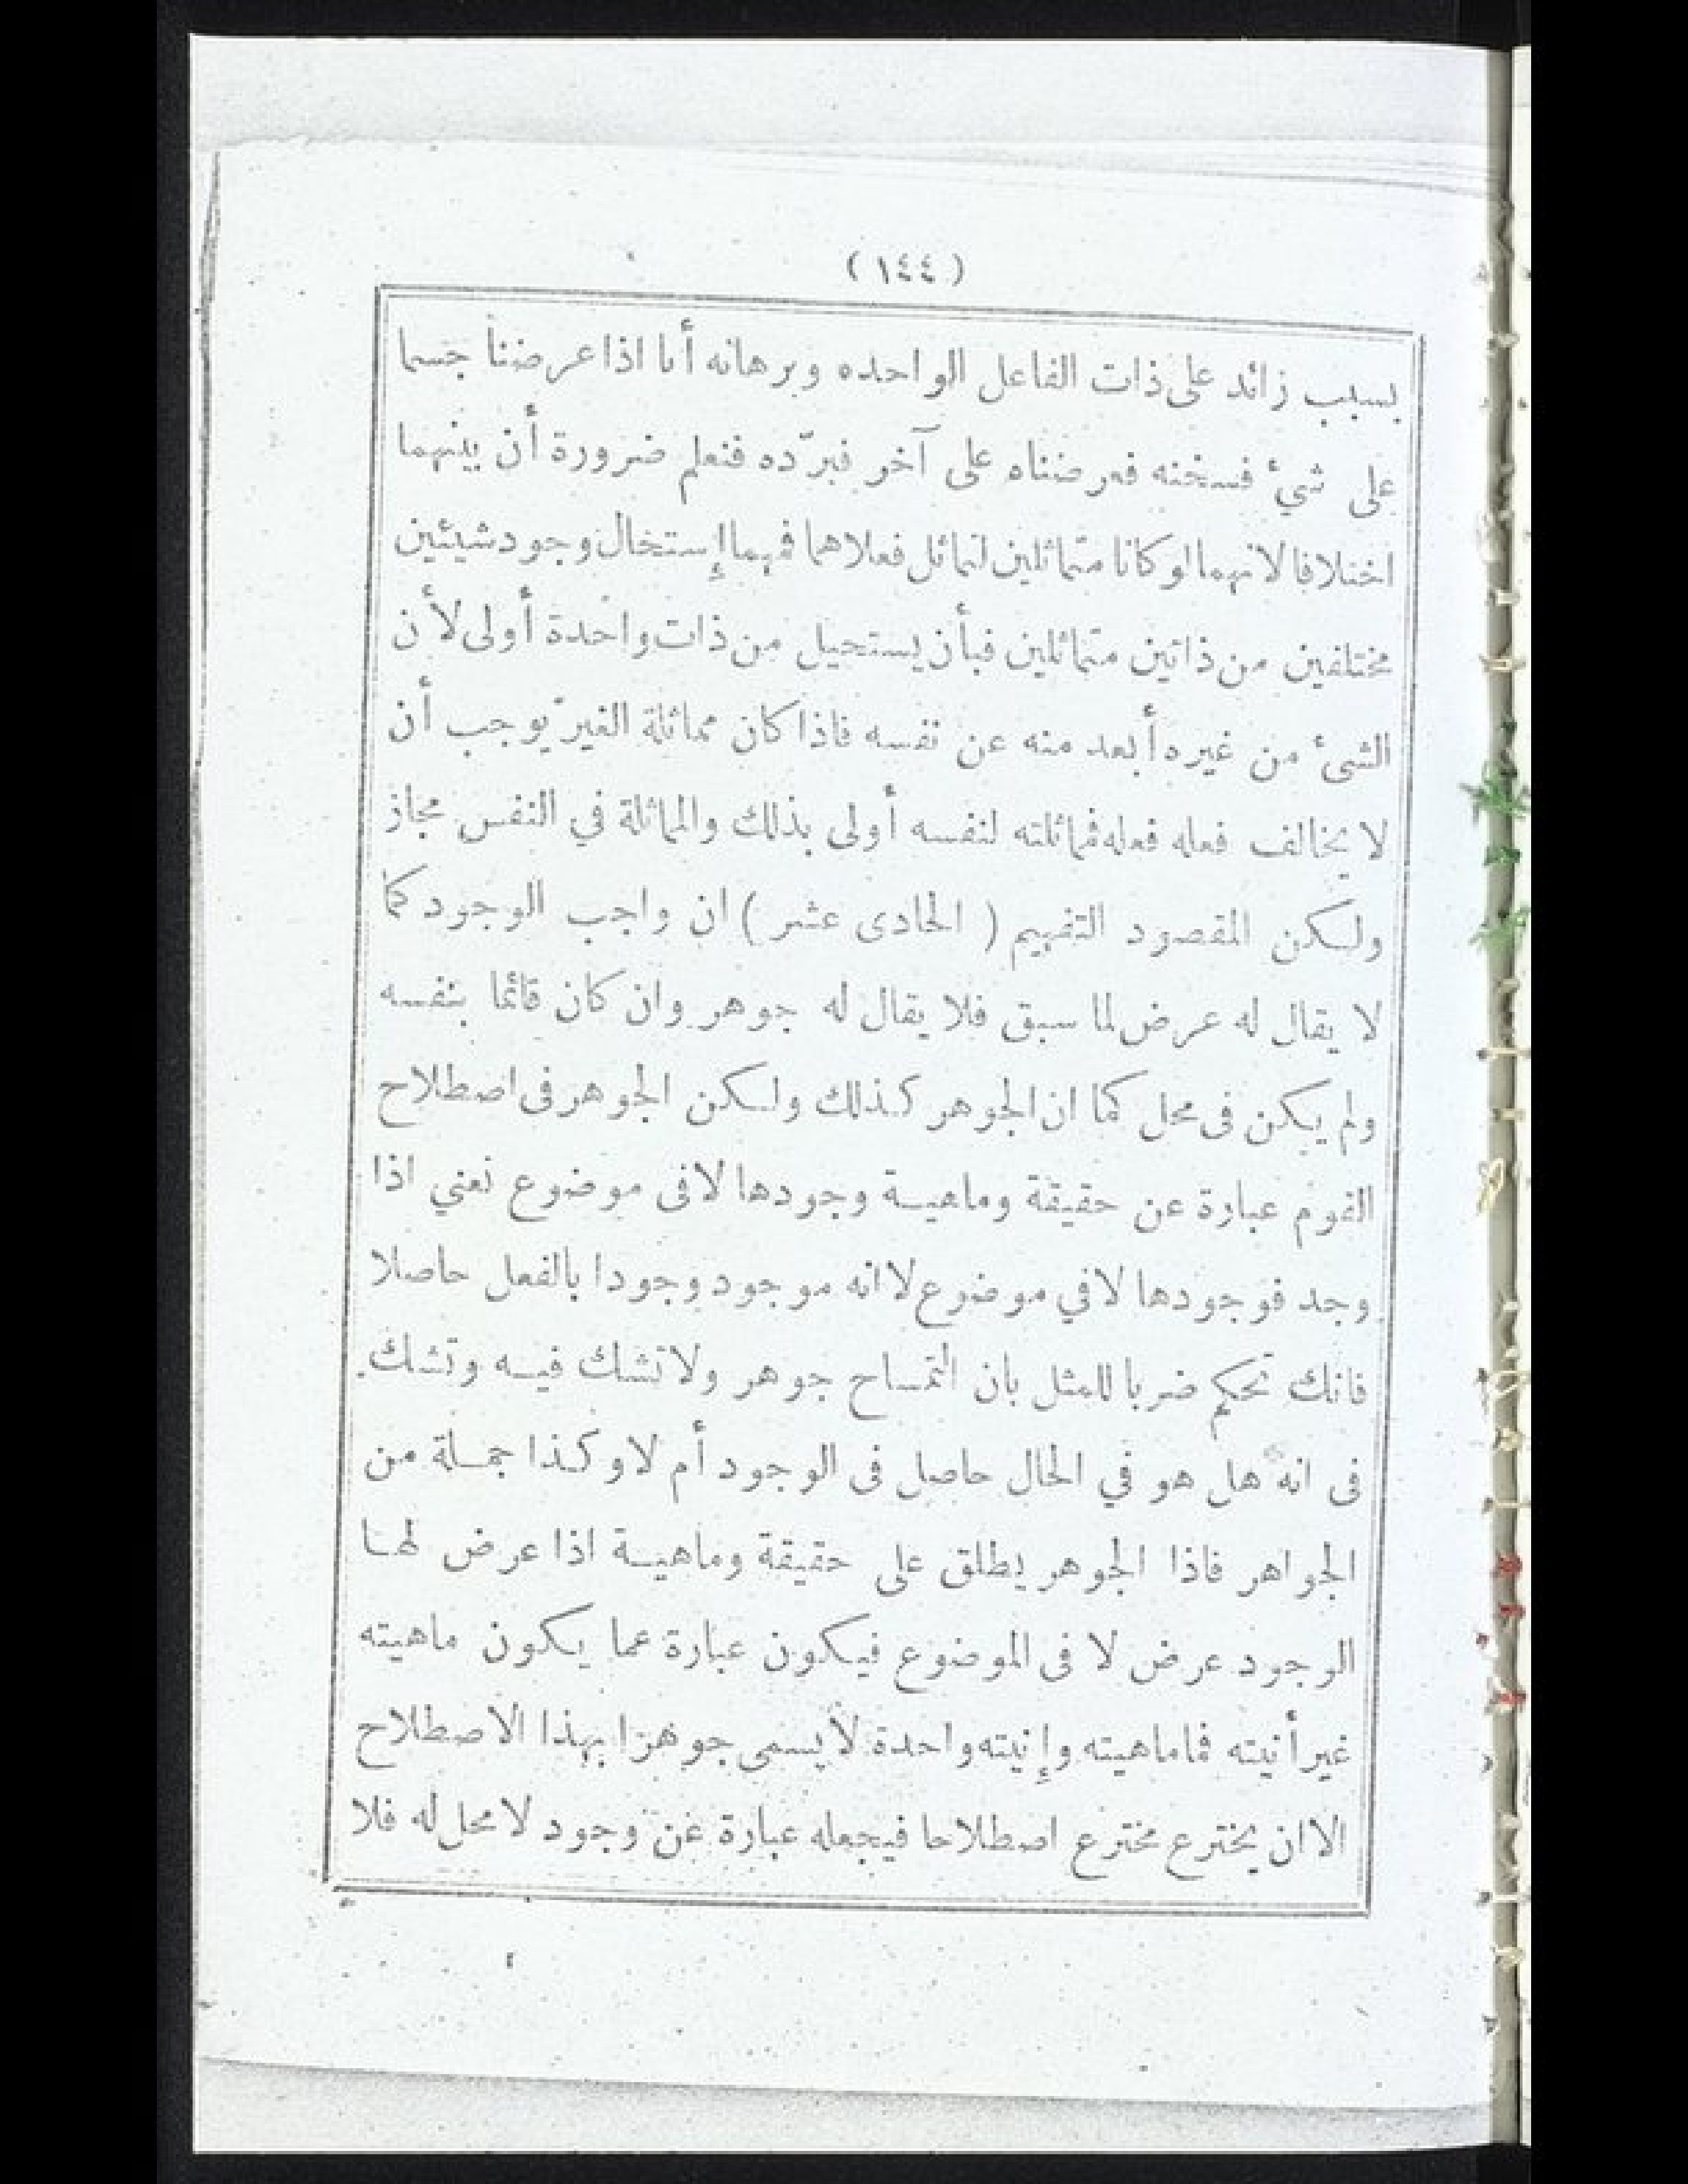 (١٤٤)
بسبب زائد على ذات الفاعل الواحده وبرهانه أنا اذا عرضنا جسما
على شيئ فسخنه فعرضناه على آخر فبرّده فنعلم ضرورة أن بينهما
اختلافا لانهما لو كانا متماثلين لتماثل فعلاهما فهما إستحال وجود شيئين
مختلفين من ذاتين متماثلين فبأن يستحيل من ذات واحدة أولى لأن
الشئ من غيره أبعد منه عن نفسه فاذا كان مماثلة الغير يوجب أن
لا يخالف فعله فعله فماثلته لنفسه أولى بذلك والمماثلة في النفس مجاز
ولكن المقصود التفهيم ( الحادى عشر ) ان واجب الوجود كما
لا يقال له عرض لما سبق فلا يقال له جوهر وان كان قائما بنفسه
ولم يكن فى محل كما ان الجوهر كذلك ولكن الجوهر فى اصطلاح
القوم عبارة عن حقيقة وماهية وجودها لافى موضوع نعني اذا
وجد فوجودها لافي موضوع لا انه موجود وجودا بالفعل حاصلا
فانك تحكم ضربا للمثل بان التمساح جوهر ولا تشك فيه وتشك
فى انه هل هو في الحال حاصل فى الوجود أم لا وكذا جملة من
الجواهر فاذا الجوهر يطلق على حقيقة وماهية اذا عرض لها
الوجود عرض لا فى الموضوع فيكون عبارة عما يكون ماهيته
غير أنيته فما ماهيته وإنيته واحدة لا يسمى جوهرا بهذا الاصطلاح
الا ان يخترع مخترع اصطلاحا فيجعله عبارة عن وجود لا محل له فلا